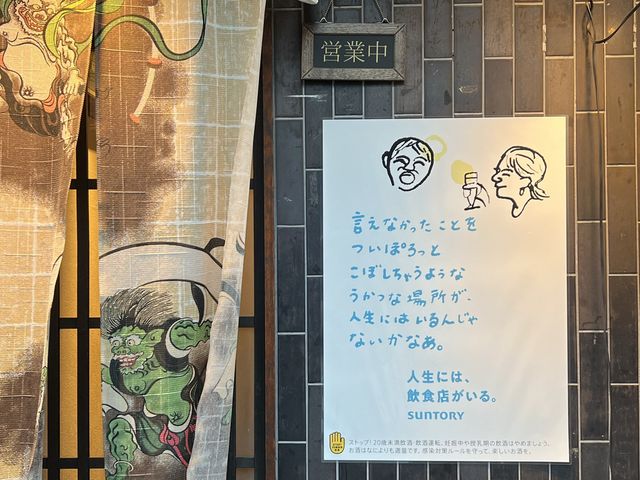 営業中
言えなかったことを
ついぽろっと
こぼしちゃうような
うかつな場所が、
人生にはいるんじゃ
ないかなあ。
人生には、
飲食店がいる。
SUNTORY
ストップ!20歳未満飲酒・飲酒運転。妊娠中や授乳期の飲酒はやめましょう。
お酒はなによりも適量です。感染対策ルールを守って、楽しいお酒を。